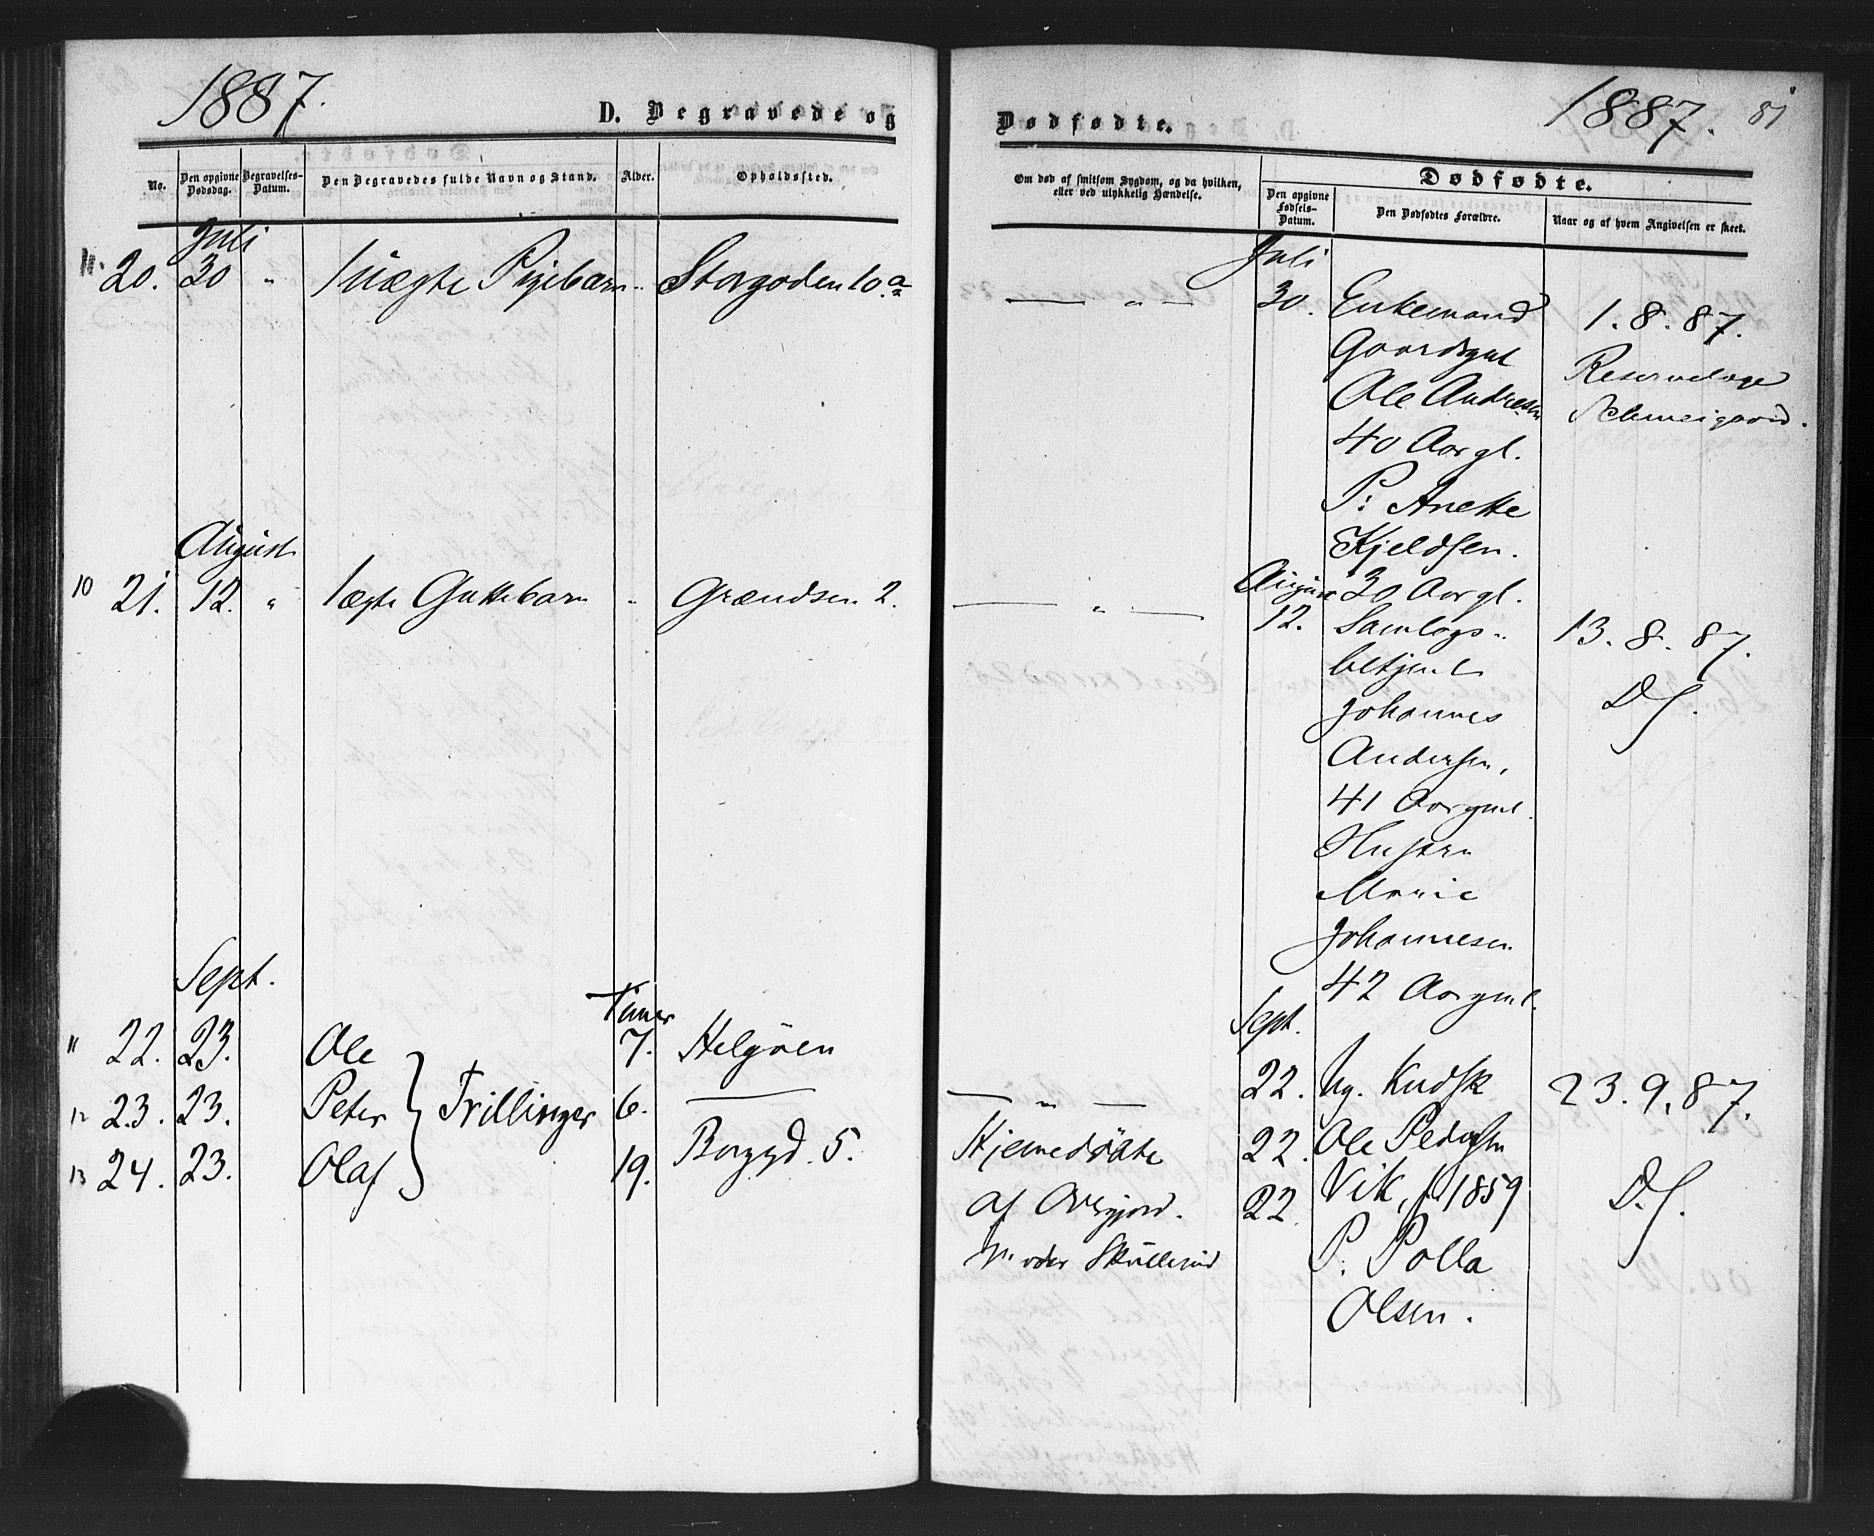 1887.
D. Begravede og
No.
Den opgivne Dødsdag.
Begravelses-Datum.
Den Begravedes fulde Navn og Stand.
Alder.
Opholdssted.
Juli
11. 20. 30 " 1 uægte Pigebarn " Storgaden 10 a
August
10 21. 12. " 1 ægte Guttebarn " Grændsen 2.
Sept.
Timer
11 22. 23. Ole 7. Helgöen
12 23. 23. Peter } Trillinger 6. —
13 24. 23. Olaf 19. Borggd. 5.
1887. 81
Dødfødte.
Om død af smitsom Sygdom, og da hvilken,
eller ved ulykkelig Hændelse.
Dødfødte.
Den opgivne Fødsels-Datum.
Den Dødfødtes Forældre.
Naar og af hvem Angivelsen er skeet.
Juli
— " — 30. Enkemand 1.8.87.
Gaardsgut Reservelæge
Ole Andresen Schweigaard.
40 Aar gl.
P: Anette
Kjeldsen.
August 30 Aar gl.
— " — 12. Samlags- 13.8.87.
betjent
Johannes D.S.
Andersen,
41 Aar gml.
Hustru
Marie
Johannesen
42 Aar gml.
Sept.
— " — 22. Ug. Kudsk 23.9.87.
Hjemedöbte 22. Ole Pedersen
af 22. Vik, f 1859 D.S.
P. Polla
Olsen.